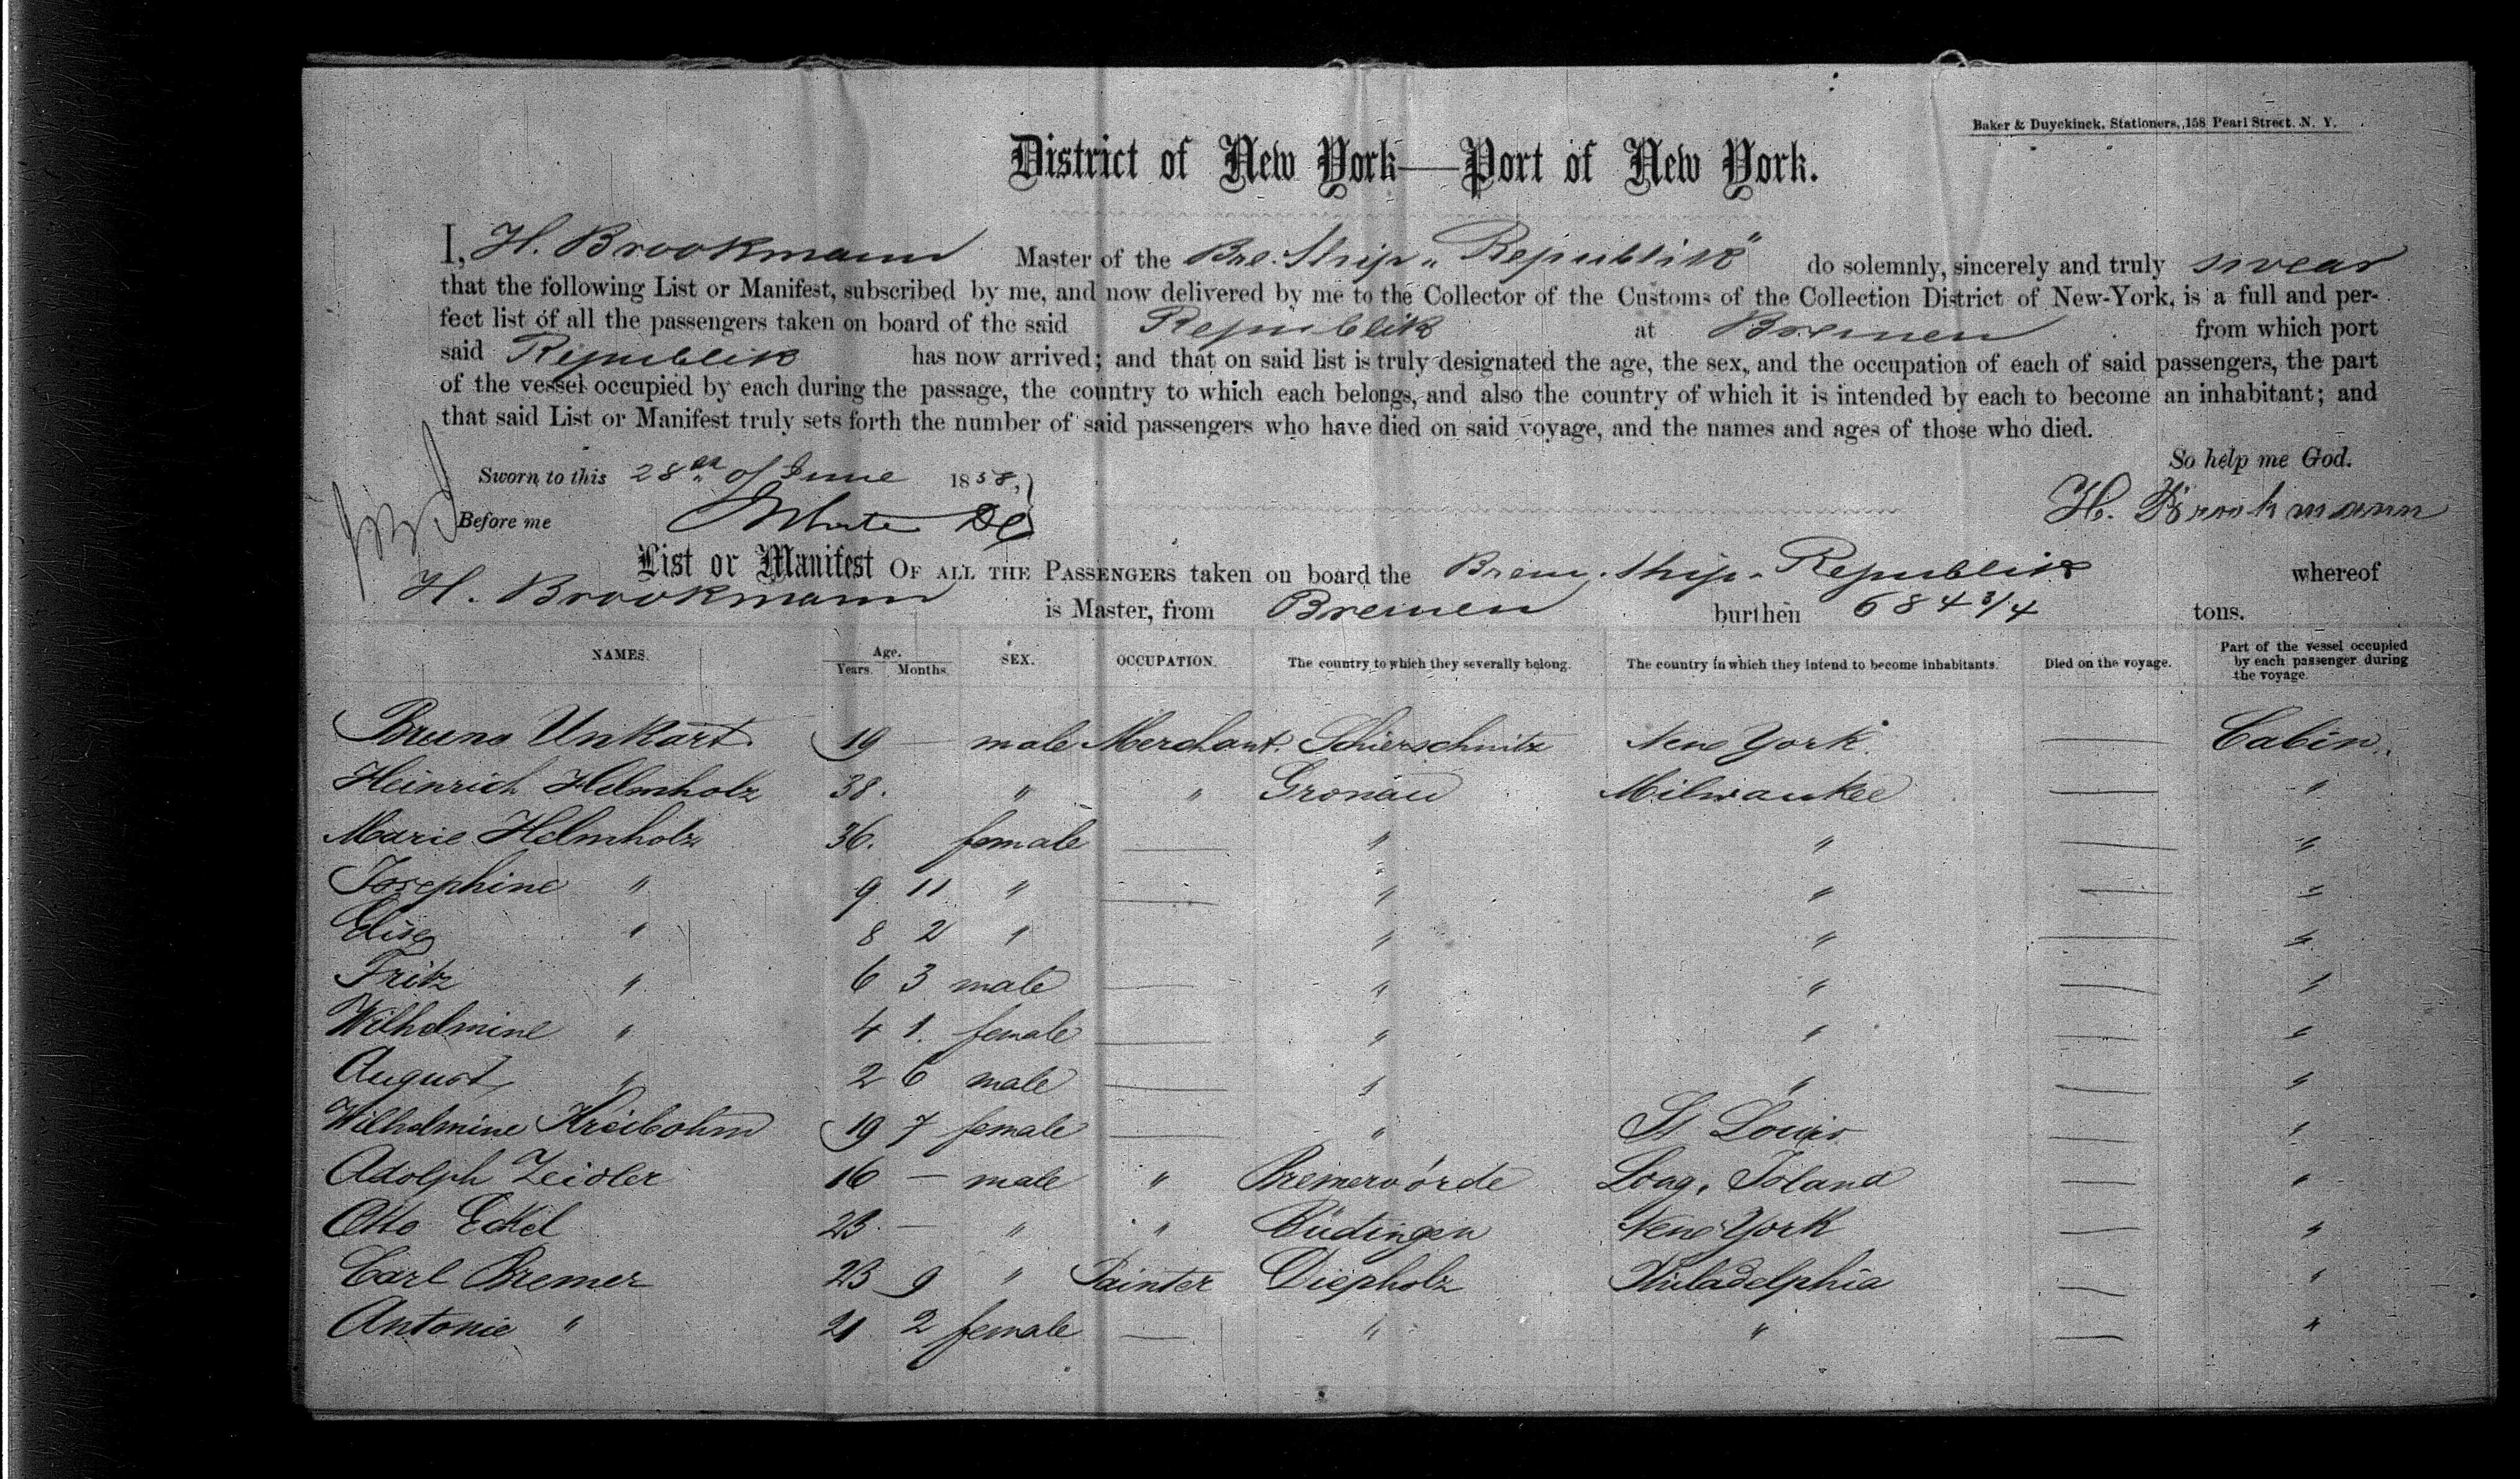 Baker & Duyckinck, Stationers, 158 Pearl Street. N. Y.
District of New York—Port of New York.
I, H. Brookmann Master of the Bre. Ship „Republik" do solemnly, sincerely and truly swear
that the following List or Manifest, subscribed by me, and now delivered by me to the Collector of the Customs of the Collection District of New-York, is a full and per-
fect list of all the passengers taken on board of the said Republik at Bremen from which port
said Republik has now arrived; and that on said list is truly designated the age, the sex, and the occupation of each of said passengers, the part
of the vessel occupied by each during the passage, the country to which each belongs, and also the country of which it is intended by each to become an inhabitant; and
that said List or Manifest truly sets forth the number of said passengers who have died on said voyage, and the names and ages of those who died.
So help me God.
Sworn to this 28 of June 1858,
H. Brookmann
Before me
List or Manifest OF ALL THE PASSENGERS taken on board the Brem. Ship „Republik whereof
H. Brookmann is Master, from Bremen burthen 684 3/4 tons.
NAMES. Age. Years. Months. SEX. OCCUPATION. The country to which they severally belong. The country in which they intend to become inhabitants. Died on the voyage. Part of the vessel occupied by each passenger during the voyage.
Bruno Unkart 19 — male Merchant Schierschnitz New York — Cabin.
Heinrich Helmholz 38. " " Gronau Milwaukee — "
Marie Helmholz 36. female — " " — "
Josephine " 9 11 " — " " — "
Elise " 8 2 " — " " — "
Fritz " 6 3 male — " " — "
Wilhelmine " 4 1. female — " " — "
August " 2 6 male — " " — "
Wilhelmine Kreibohm 19 7 female — " St Louis — "
Adolph Zeidler 16 — male " Bremervörde Long. Island — "
Otto Eckel 23. — " " Büdingen New York — "
Carl Bremer 23 9 " Painter Diepholz Philadelphia — "
Antonie " 21 2 female — " " — "